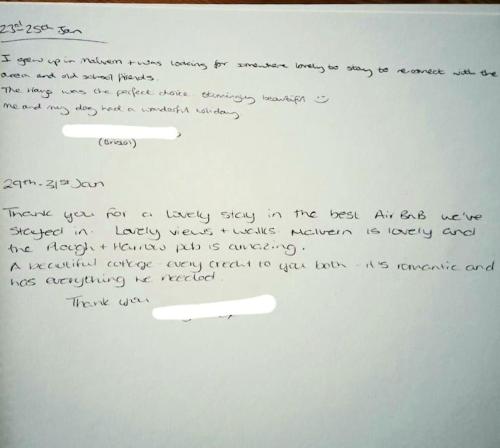 23rd-25th Jan
I grew up in Malvern + was looking for somewhere lovely to stay to reconnect with the
area and old school friends.
The Hayp was the perfect choice. Stunningly beautiful ☺
me and my dog had a wonderful holiday
(Bristol)
29th-31st Jan
Thank you for a lovely stay in the best Air BnB we've
stayed in. Lovely views + walks. Malvern is lovely and
the Plough + Harrow pub is amazing.
A beautiful cottage - every credit to you both - it's romantic and
has everything we needed.
Thank you